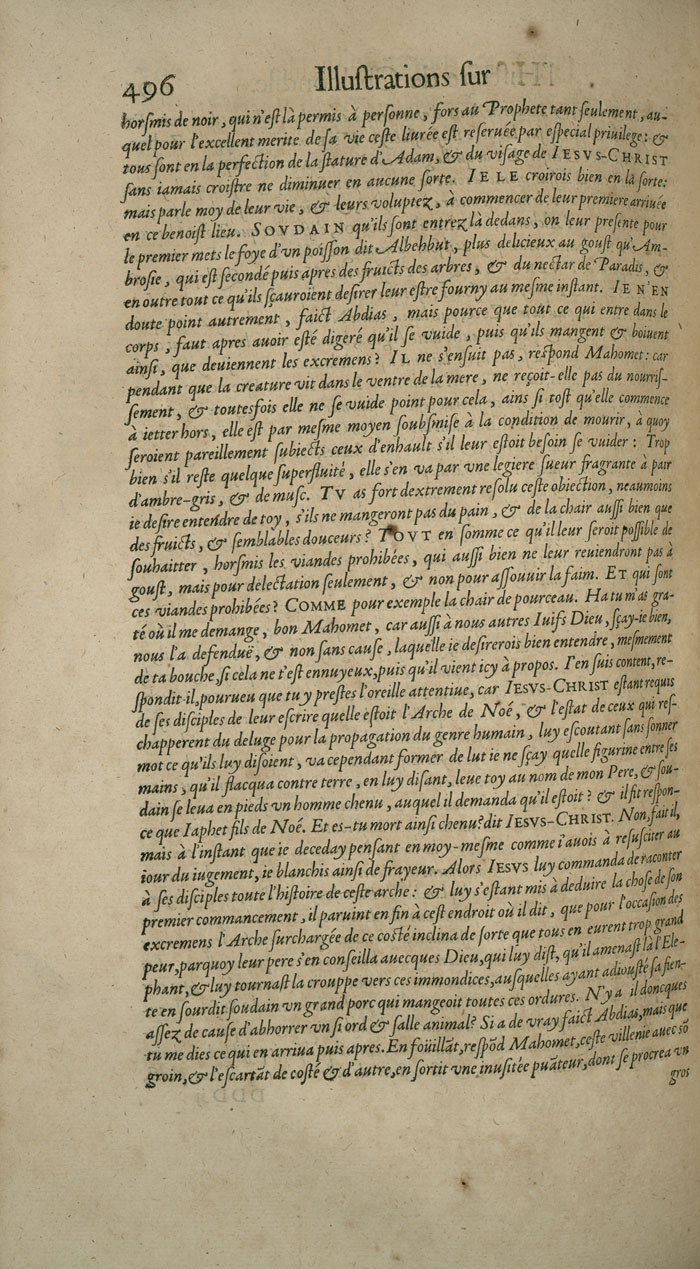 496 Illuſtrations ſur
horſmis de noir, qui n'eſt là permis à perſonne, fors au Prophete tant ſeulement, au-
quel pour l'excellent merite de ſa vie ceſte liurée eſt reſeruée par eſpecial priuilege: &
tous ſont en la perfection de la ſtature d'Adam, & du viſage de IESVS-CHRIST
ſans iamais croiſtre ne diminuer en aucune ſorte. IE LE croirois bien en la ſorte:
mais parle moy de leur vie, & leurs voluptez, à commencer de leur premiere arriuée
en ce benoiſt lieu. SOVDAIN qu'ils ſont entrez là dedans, on leur preſente pour
le premier mets le foye d'vn poiſſon dit Albehbut, plus delicieux au gouſt qu'Am-
broſie, qui eſt ſecondé puis apres des fruicts des arbres, & du nectar de Paradis, &
en outre tout ce qu'ils ſçauroient deſirer leur eſtre fourny au meſme inſtant. IE N'EN
doute point autrement, faict Abdias, mais pource que tout ce qui entre dans le
corps, faut apres auoir eſté digeré qu'il ſe vuide, puis qu'ils mangent & boiuent
ainſi, que deuiennent les excremens? IL ne s'enſuit pas, reſpond Mahomet: car
pendant que la creature vit dans le ventre de la mere, ne reçoit-elle pas du nourriſ-
ſement, & toutesfois elle ne ſe vuide point pour cela, ains ſi toſt qu'elle commence
à ietter hors, elle eſt par meſme moyen ſoubſmiſe à la condition de mourir, à quoy
ſeroient pareillement ſubiects ceux d'enhault s'il leur eſtoit beſoin ſe vuider: Trop
bien s'il reſte quelque ſuperfluité, elle s'en va par vne legiere ſueur fragrante à pair
d'ambre-gris, & de muſc. TV as fort dextrement reſolu ceſte obiection, neaumoins
ie deſire entendre de toy, s'ils ne mangeront pas du pain, & de la chair auſſi bien que
des fruicts, & ſemblables douceurs? TOVT en ſomme ce qu'il leur ſeroit poſſible de
ſouhaitter, horſmis les viandes prohibées, qui auſſi bien ne leur reuiendront pas à
gouſt, mais pour delectation ſeulement, & non pour aſſouuir la faim. ET qui ſont
ces viandes prohibées? COMME pour exemple la chair de pourceau. Ha tu m'as gra-
té où il me demange, bon Mahomet, car auſſi à nous autres Iuifs Dieu, ſçay-ie bien,
nous l'a defenduë, & non ſans cauſe, laquelle ie deſirerois bien entendre, meſmement
de ta bouche, ſi cela ne t'eſt ennuyeux, puis qu'il vient icy à propos. I'en ſuis content, re-
ſpondit-il, pourueu que tu y preſtes l'oreille attentiue, car IESVS-CHRIST eſtant requis
de ſes diſciples de leur eſcrire quelle eſtoit l'Arche de Noé, & l'eſtat de ceux qui reſ-
chapperent du deluge pour la propagation du genre humain, luy eſcoutant ſans ſonner
mot ce qu'ils luy diſoient, va cependant former de lut ie ne ſçay quelle figurine entre ſes
mains, qu'il flacqua contre terre, en luy diſant, leue toy au nom de mon Pere, & ſou-
dain ſe leua en pieds vn homme chenu, auquel il demanda qu'il eſtoit? & il fit reſpon-
ce que Iaphet fils de Noé. Et es-tu mort ainſi chenu? dit IESVS-CHRIST. Non, fait il,
mais à l'inſtant que ie deceday penſant en moy-meſme comme i'auois à reſuſciter au
iour du iugement, ie blanchis ainſi de frayeur. Alors IESVS luy commanda de raconter
à ſes diſciples toute l'hiſtoire de ceſte arche: & luy s'eſtant mis à deduire la choſe de ſon
premier commancement, il paruint en fin à ceſt endroit où il dit, que pour l'occaſion des
excremens l'Arche ſurchargée de ce coſté inclina de ſorte que tous en eurent trop grand
peur, parquoy leur pere s'en conſeilla auecques Dieu, qui luy diſt, qu'il amenaſt là l'Ele-
phant, & luy tournaſt la crouppe vers ces immondices, auſquelles ayant adiouſté ſa fien-
te en ſourdit ſoudain vn grand porc qui mangeoit toutes ces ordures. N'y a il doncques
aſſez de cauſe d'abhorrer vn ſi ord & ſalle animal? Si a de vray faict Abdias, mais que
tu me dies ce qui en arriua puis apres. En foüillāt, reſpōd Mahomet, ceſte villenie auec sō
groin, & l'eſcartāt de coſté & d'autre, en ſortit vne inuſitée puāteur, dont ſe procrea vn
gros